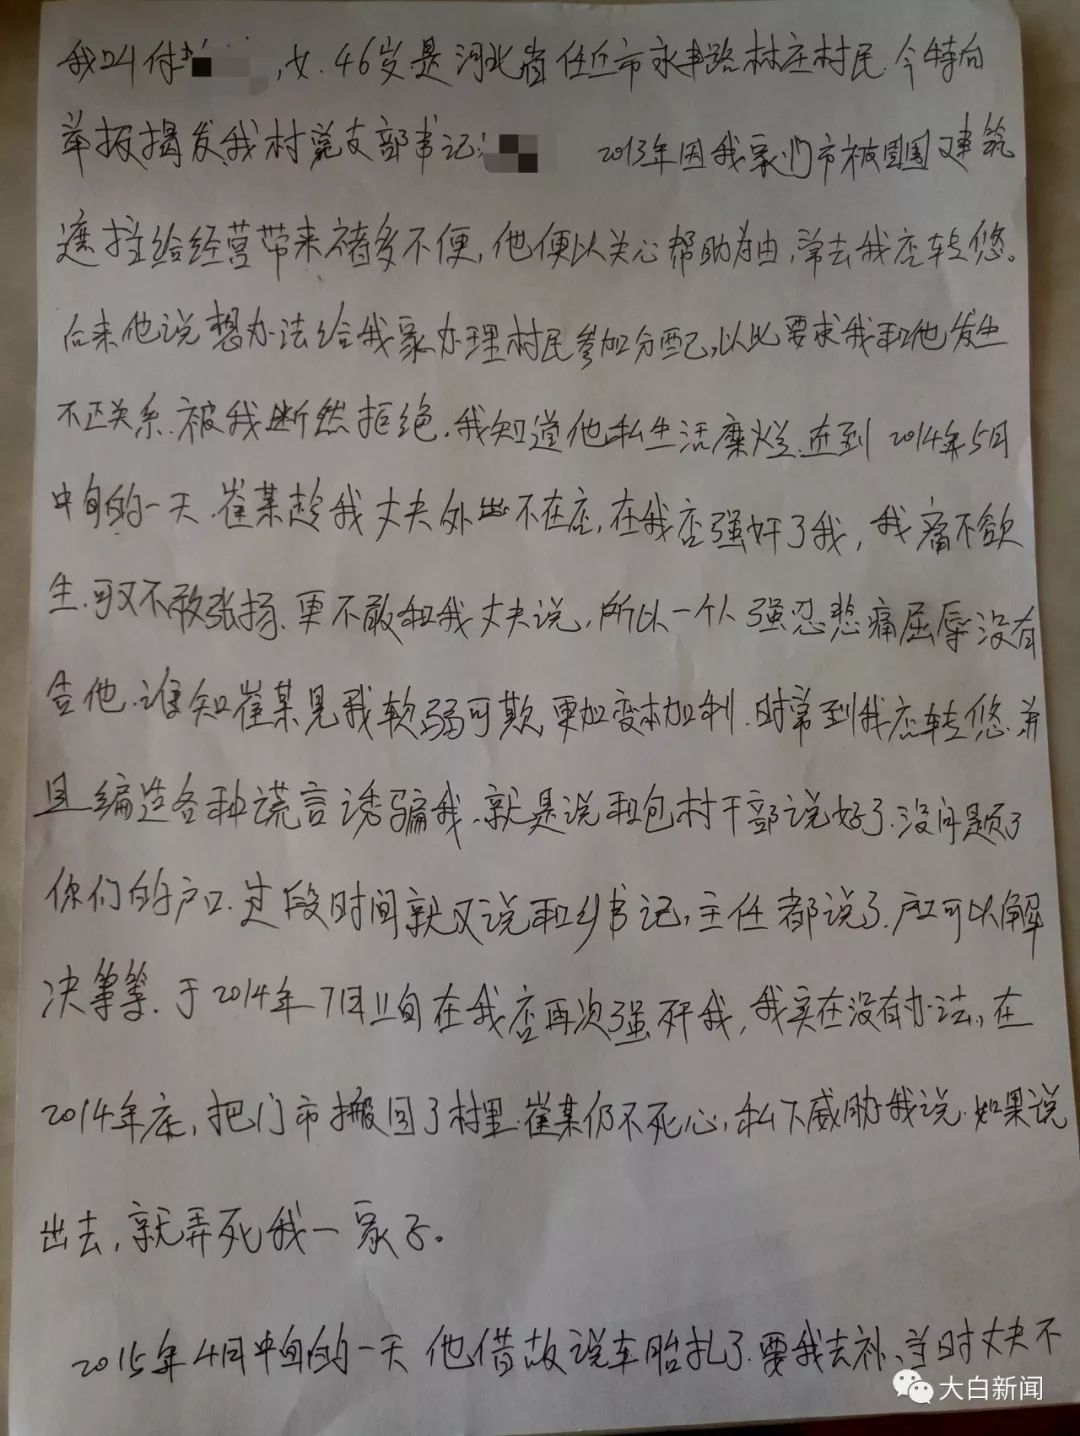 我叫付，女．46岁是河北省任丘市永丰路林庄村民．今特向
举报揭发我村党支部书记： 2013年因我家门市被围建筑
遮挡给经营带来诸多不便，他便以关心帮助为由，常去我店转悠。
后来他说想办法给我家办理村民参加分配，以此要求我和他发生
不正关系．被我断然拒绝．我知道他私生活糜烂．直到2014年5月
中旬的一天．崔某趁我丈夫外出不在店，在我店强奸了我，我痛不欲
生．可又不敢张扬．更不敢和我丈夫说，所以一个人强忍悲痛屈辱没有
告他．谁知崔某见我软弱可欺，更加变本加利．时常到我店转悠．并
且编造各种谎言诱骗我．就是说和包村干部说好了．没问题了
你们的户口．过段时间就又说和乡书记，主任都说了．户口可以解
决等等．于2014年7月上旬在我店再次强奸我，我实在没有办法，在
2014年底，把门市搬回了村里．崔某仍不死心，私下威胁我说．如果说
出去，就弄死我一家子。
2015年4月中旬的一天 他借故说车胎扎了．要我去补．当时丈夫不
大白新闻